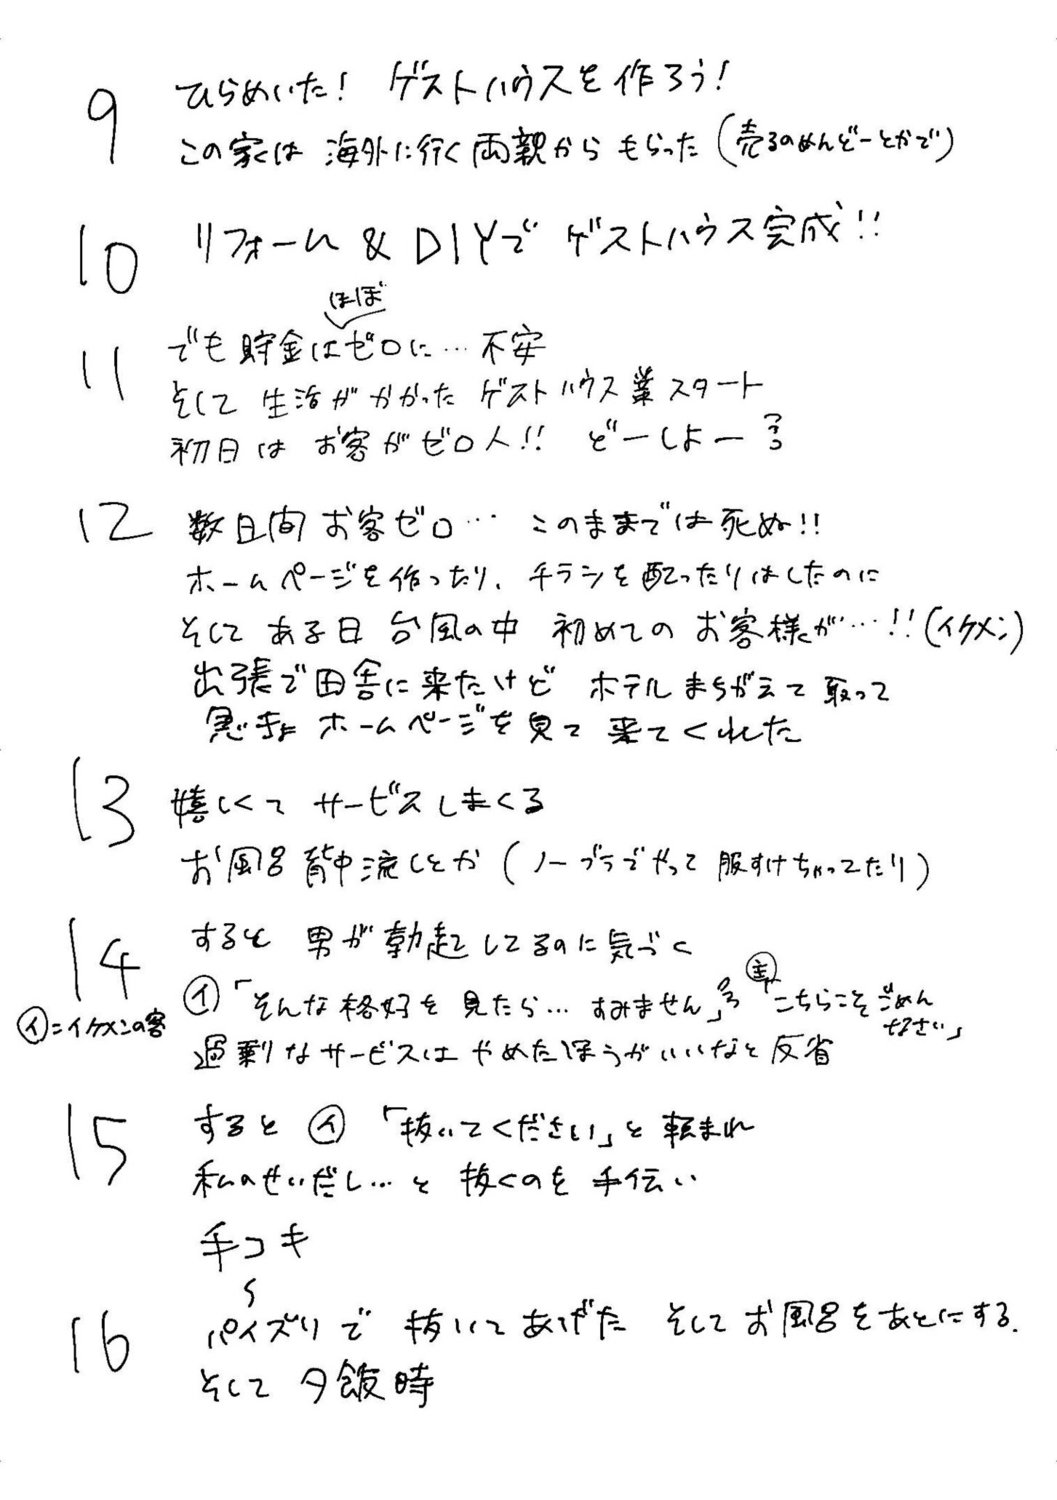 9 ひらめいた! ゲストハウスを作ろう!
この家は 海外に行く両親から もらった (売るのめんどーとかで)
10 リフォーム & DIYで ゲストハウス完成!!
ほぼ
11 でも貯金はゼロに… 不安
そして 生活がかかった ゲストハウス業スタート
初日は お客がゼロ人!! どーしよー
12 数日間 お客ゼロ… このままでは死ぬ!!
ホームページを作ったり、チラシを配ったりはしたのに
そして ある日 台風の中 初めての お客様が…!! (イケメン)
出張で田舎に来たけど ホテルまちがえて取って
急きょ ホームページを見て 来てくれた
13 嬉しくて サービスしまくる
お風呂 背中流しとか (ノーブラでやって 服すけちゃってたり)
14 すると 男が勃起してるのに気づく
イ 「そんな格好を見たら… すみません」 主 「こちらこそごめん
なさい」
イ=イケメンの客
過剰なサービスは やめたほうがいいなと反省
15 すると イ 「抜いてください」と 頼まれ
私のせいだし… と 抜くのを 手伝い
手コキ
16 パイズリで 抜いてあげた そしてお風呂をあとにする.
そして 夕飯時